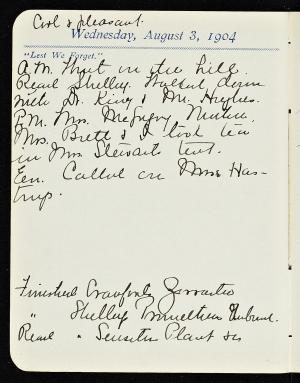 Cool & pleasant.
Wednesday, August 3, 1904
"Lest We Forget."
A.M. on the hill.
Read Shelley. Walked down
with Dr. King & Mr. Hughes.
P.M. Mrs.
Mrs. Brett & I took tea
in Mrs. Stewarts tent.
Eve. Called on Miss Has-
trup.
Finished Crawfords Zoroaster
" Shelleys Prometheus Unbound.
Read " Sensitive Plant